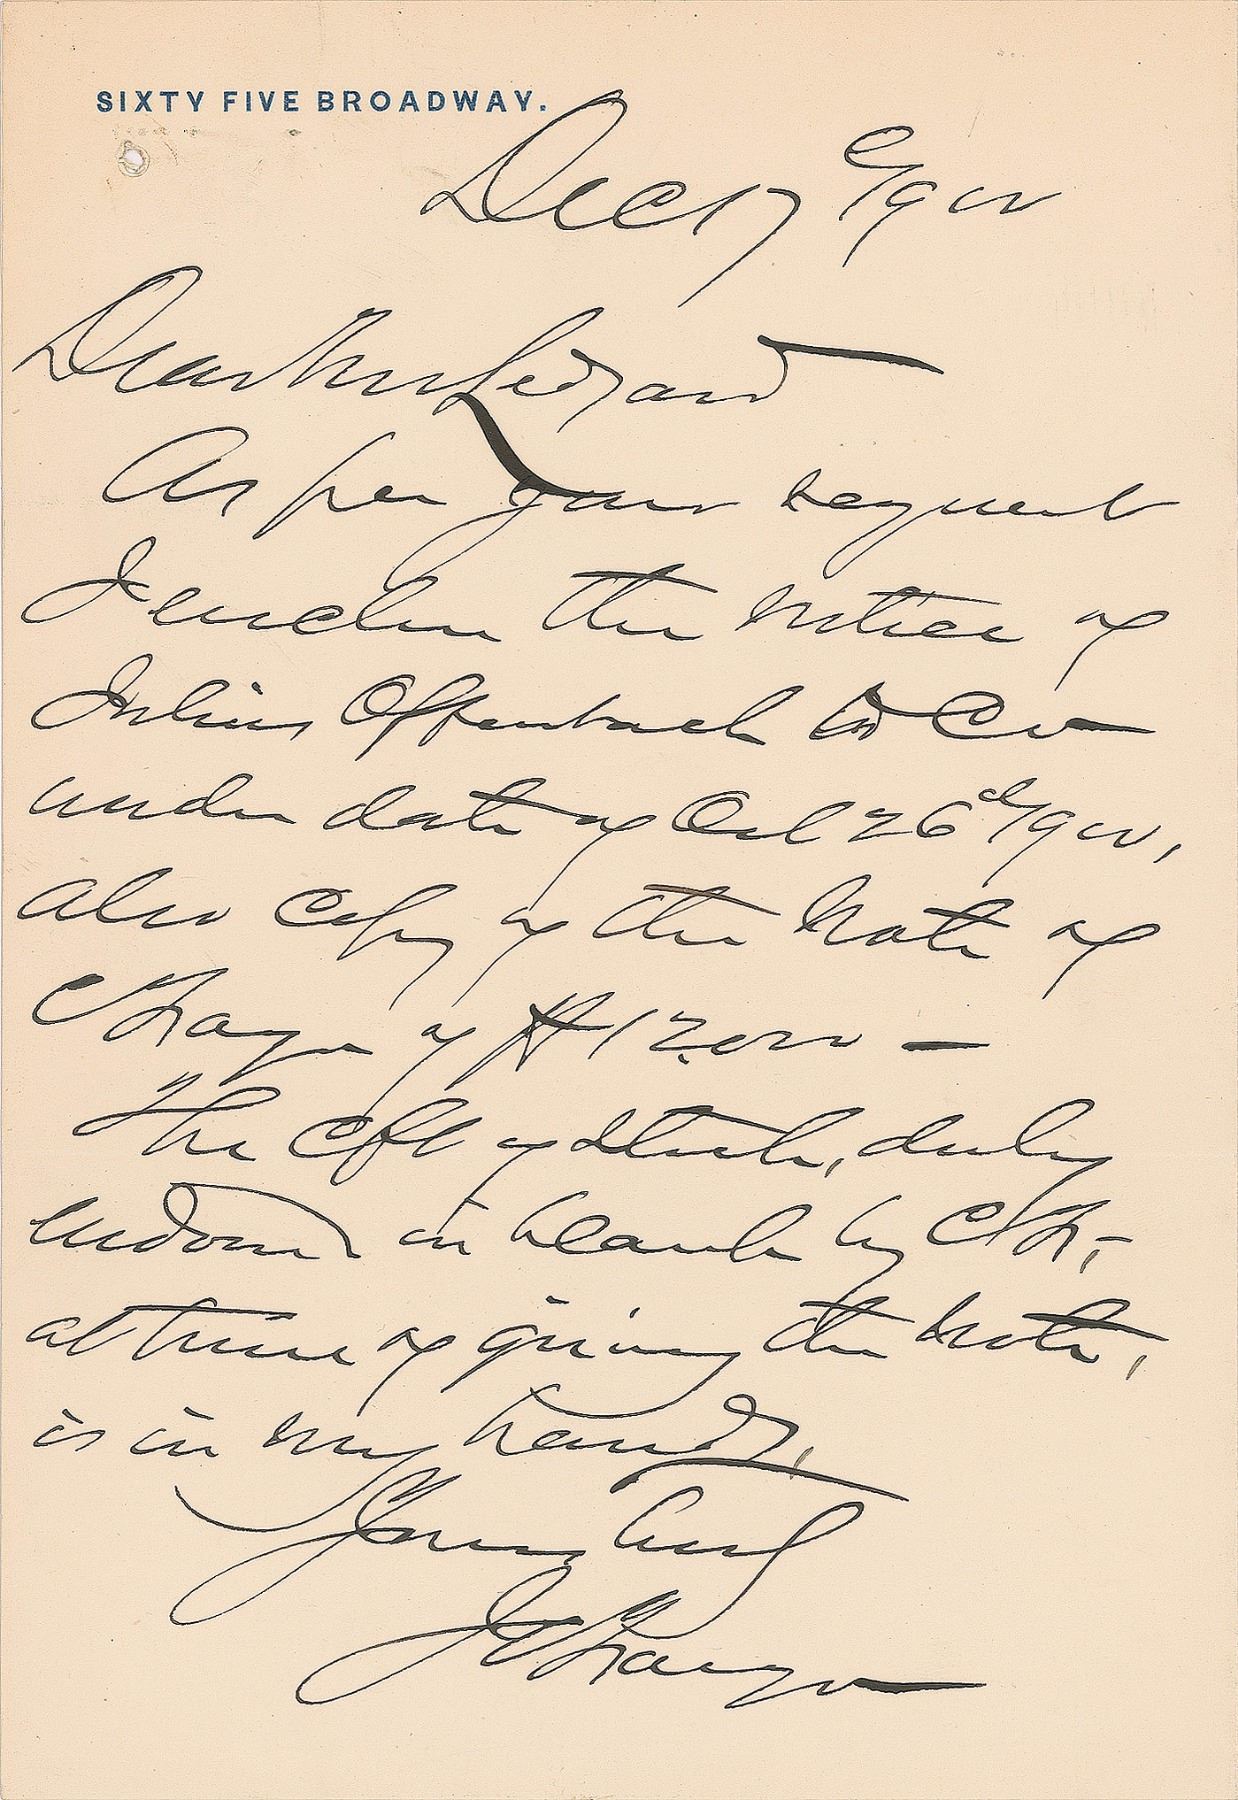 SIXTY FIVE BROADWAY.
Dec 17 1900
Dear Mr Ledyard
As per your request
I enclose the notice of
Julius Offenbach & Co
under date of Oct 26 1900,
also copy of the Note of
C Fargo of $12.000 —
The Cft of stock, duly
endorsed in blank by C F,-
at time of giving the note,
is in my hands,
Yours truly
J C Fargo